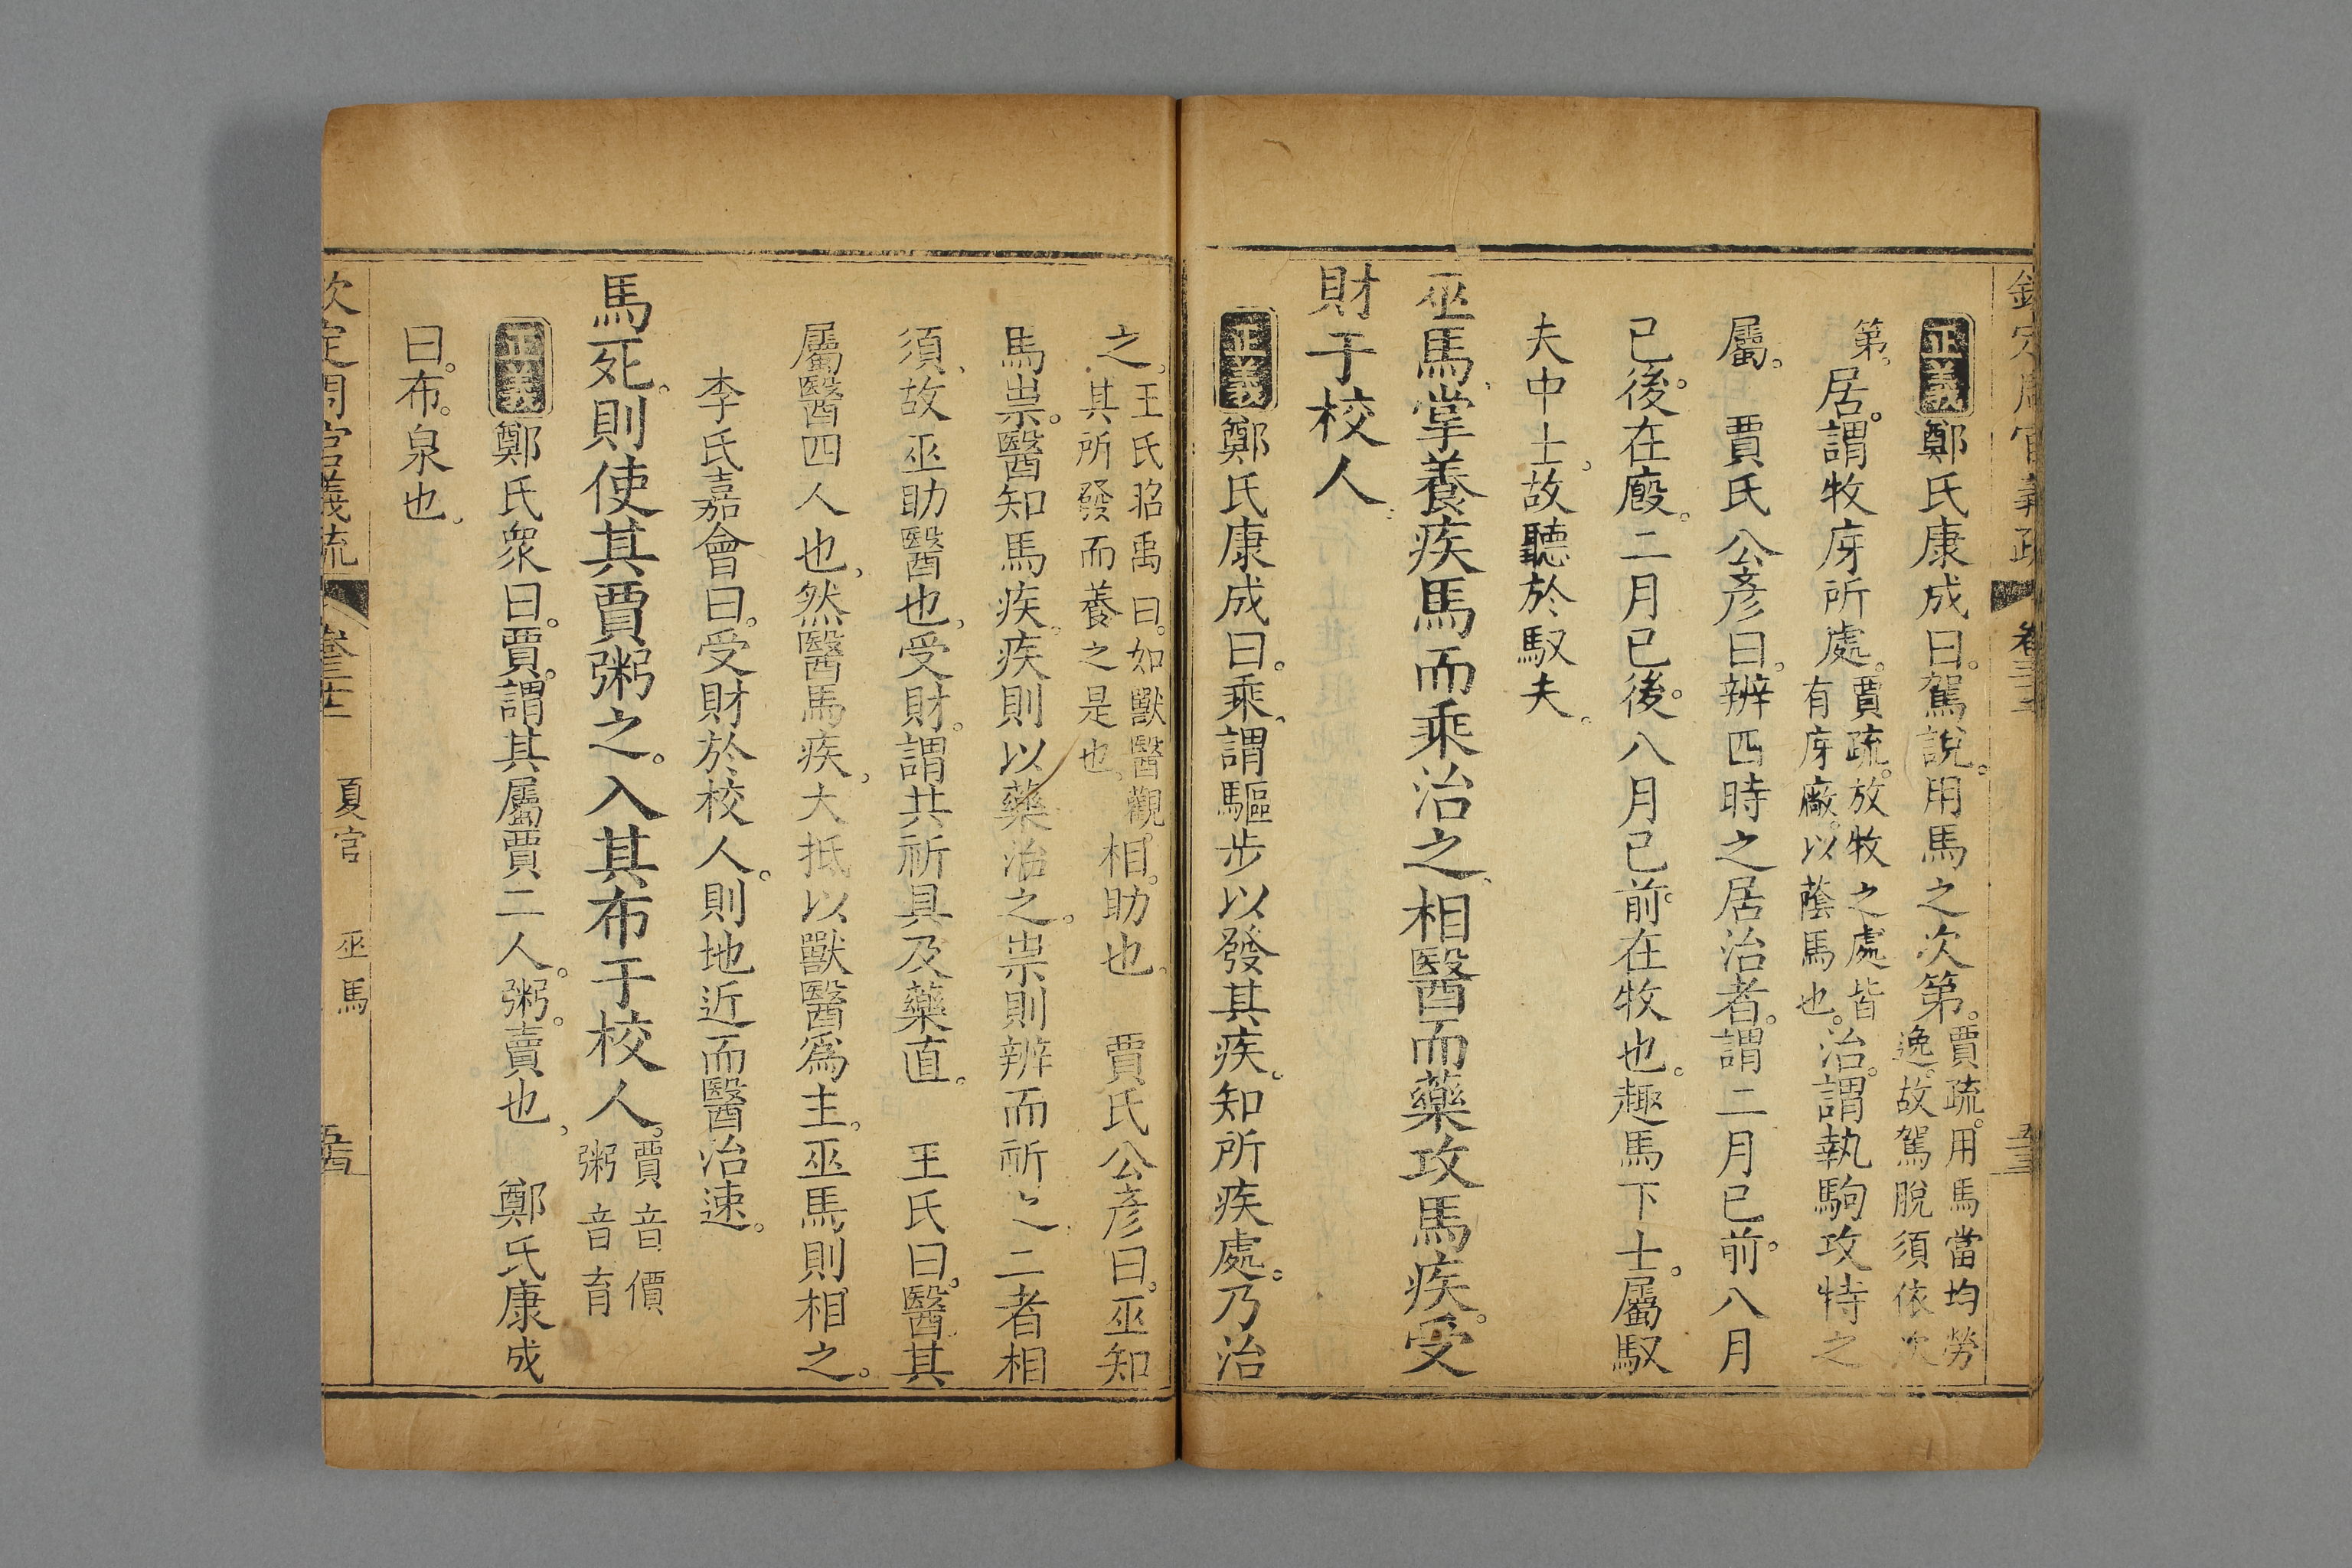 欽定周官義疏 卷三十二 五十三
正義鄭氏康成曰。駕說。用馬之次第。賈疏。用馬當均勞逸。故駕脫須依次
第。居。謂牧庌所處。賈疏。放牧之處皆有庌廠。以蔭馬也。治。謂執駒攻特之
屬。 賈氏公彥曰。辨四時之居治者。謂二月已前。八月
已後。在廏。二月已後。八月已前。在牧也。趣馬下士。屬馭
夫中士。故聽於馭夫。
巫馬、掌養疾馬而乘治之、相醫而藥攻馬疾。受
財于校人。
正義鄭氏康成曰。乘、謂驅步以發其疾。知所疾處。乃治
之。王氏昭禹曰。如獸醫觀其所發而養之是也。相。助也。 賈氏公彥曰。巫知
馬祟。醫知馬疾。疾則以藥治之。祟則辨而祈之。二者相
須、故巫助醫也、受財。謂共祈具及藥直。 王氏曰。醫其
屬醫四人也、然醫馬疾、大抵以獸醫爲主。巫馬則相之。
李氏嘉會曰。受財於校人。則地近而醫治速。
馬死。則使其賈粥之。入其布于校人。賈音價粥音育
正義鄭氏衆曰。賈。謂其屬賈二人。粥。賣也、 鄭氏康成
曰。布。泉也、
欽定周官義疏 卷三十二 夏官 巫馬 五十四